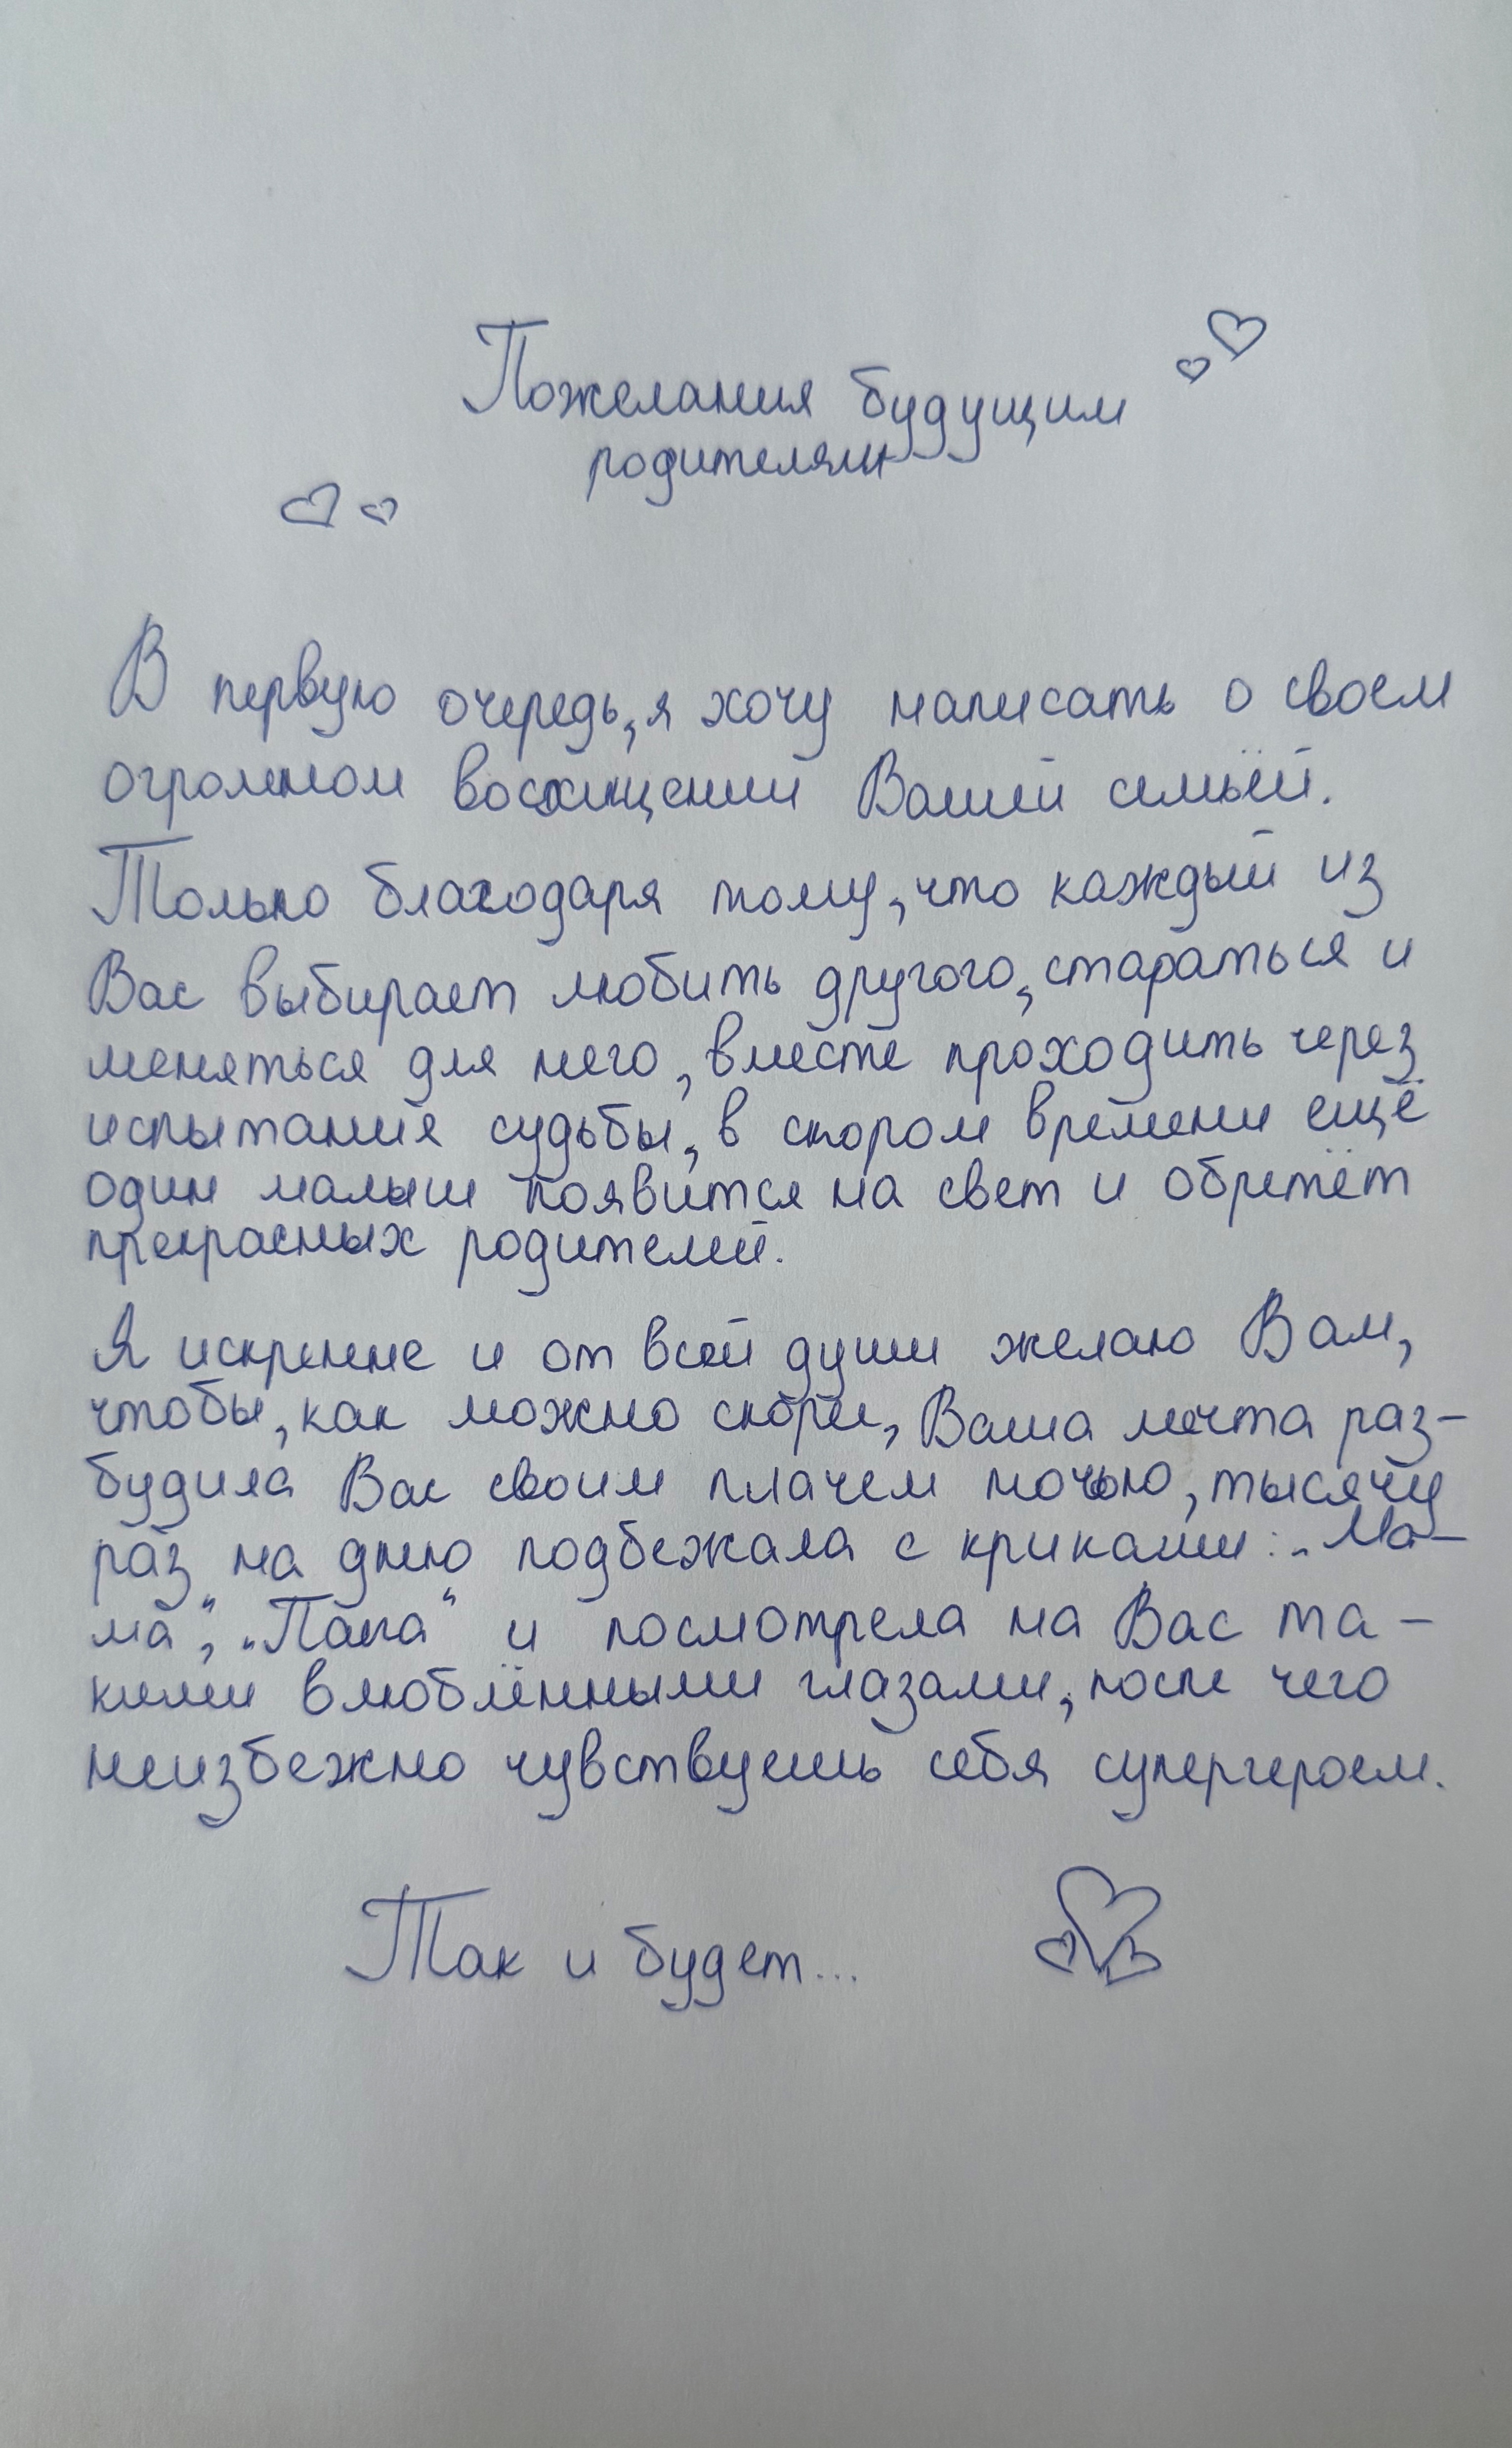 Пожелания будущим
родителям
В первую очередь, я хочу написать о своем
огромном восхищении Вашей семьёй.
Только благодаря тому, что каждый из
Вас выбирает любить другого, стараться и
меняться для него, вместе проходить через
испытание судьбы, в скором времени ещё
один малыш появится на свет и обретёт
прекрасных родителей.
Я искренне и от всей души желаю Вам,
чтобы, как можно скорей, Ваша мечта раз-
будила Вас своим плачем ночью, тысячу
раз на дню подбежала с криками: „Ма-
ма“, „Папа“ и посмотрела на Вас та-
кими влюблёнными глазами, после чего
неизбежно чувствуешь себя супергероем.
Так и будет...